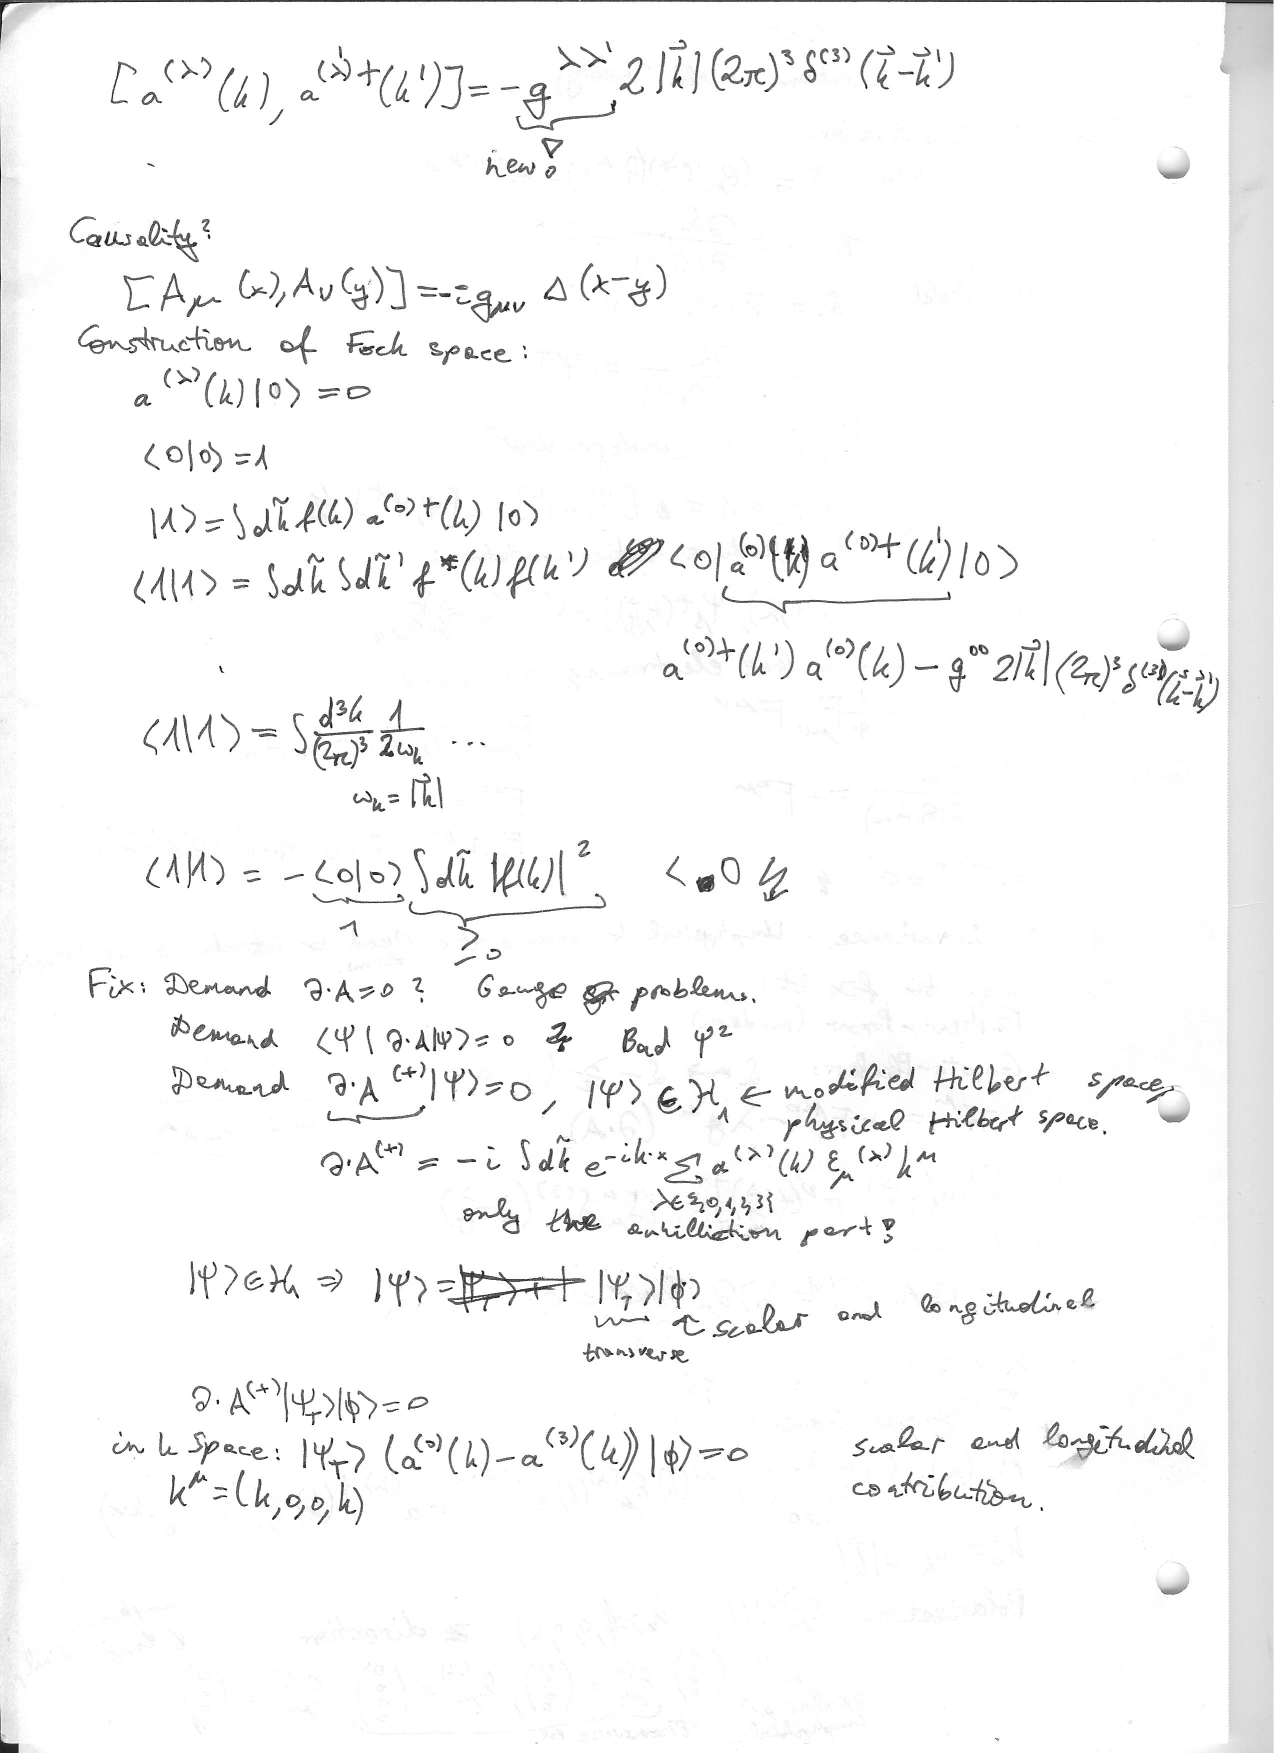 [a^(λ)(k), a^(λ')†(k')] = -g^λλ' 2|k⃗|(2π)³ δ^(3)(k⃗-k⃗')
new!
Causality?
[A_μ(x), A_ν(y)] = -i g_μν Δ(x-y)
Construction of Fock space:
a^(λ)(k)|0⟩ = 0
⟨0|0⟩ = 1
|1⟩ = ∫dk̃ f(k) a^(0)†(k) |0⟩
⟨1|1⟩ = ∫dk̃ ∫dk̃' f*(k) f(k') ⟨0|a^(0)(k) a^(0)†(k')|0⟩
a^(0)†(k') a^(0)(k) - g^00 2|k⃗|(2π)³ δ^(3)(k⃗-k⃗')
⟨1|1⟩ = ∫ d³k/(2π)³ 1/2ω_k ...
ω_k = |k⃗|
⟨1|1⟩ = -⟨0|0⟩ ∫dk̃ |f(k)|² < 0 ↯
1 ≥0
Fix: Demand ∂·A=0? Gauge problems.
Demand ⟨Ψ|∂·A|Ψ⟩=0 Bad Ψ²
Demand ∂·A^(+)|Ψ⟩=0, |Ψ⟩ ∈ H_1 ← modified Hilbert space,
physical Hilbert space.
∂·A^(+) = -i ∫dk̃ e^-ik·x Σ a^(λ)(k) ε_μ^(λ) k^μ
λ∈{0,1,2,3}
only the anhilliation part!
|Ψ⟩∈H_1 ⇒ |Ψ⟩ = |Ψ_T⟩|ϕ⟩
↑ scalar and longitudinal
transverse
∂·A^(+)|Ψ_T⟩|ϕ⟩=0
in k space: |Ψ_T⟩ (a^(0)(k) - a^(3)(k))|ϕ⟩=0 scalar and longitudinal
k^μ = (k,0,0,k) contribution.